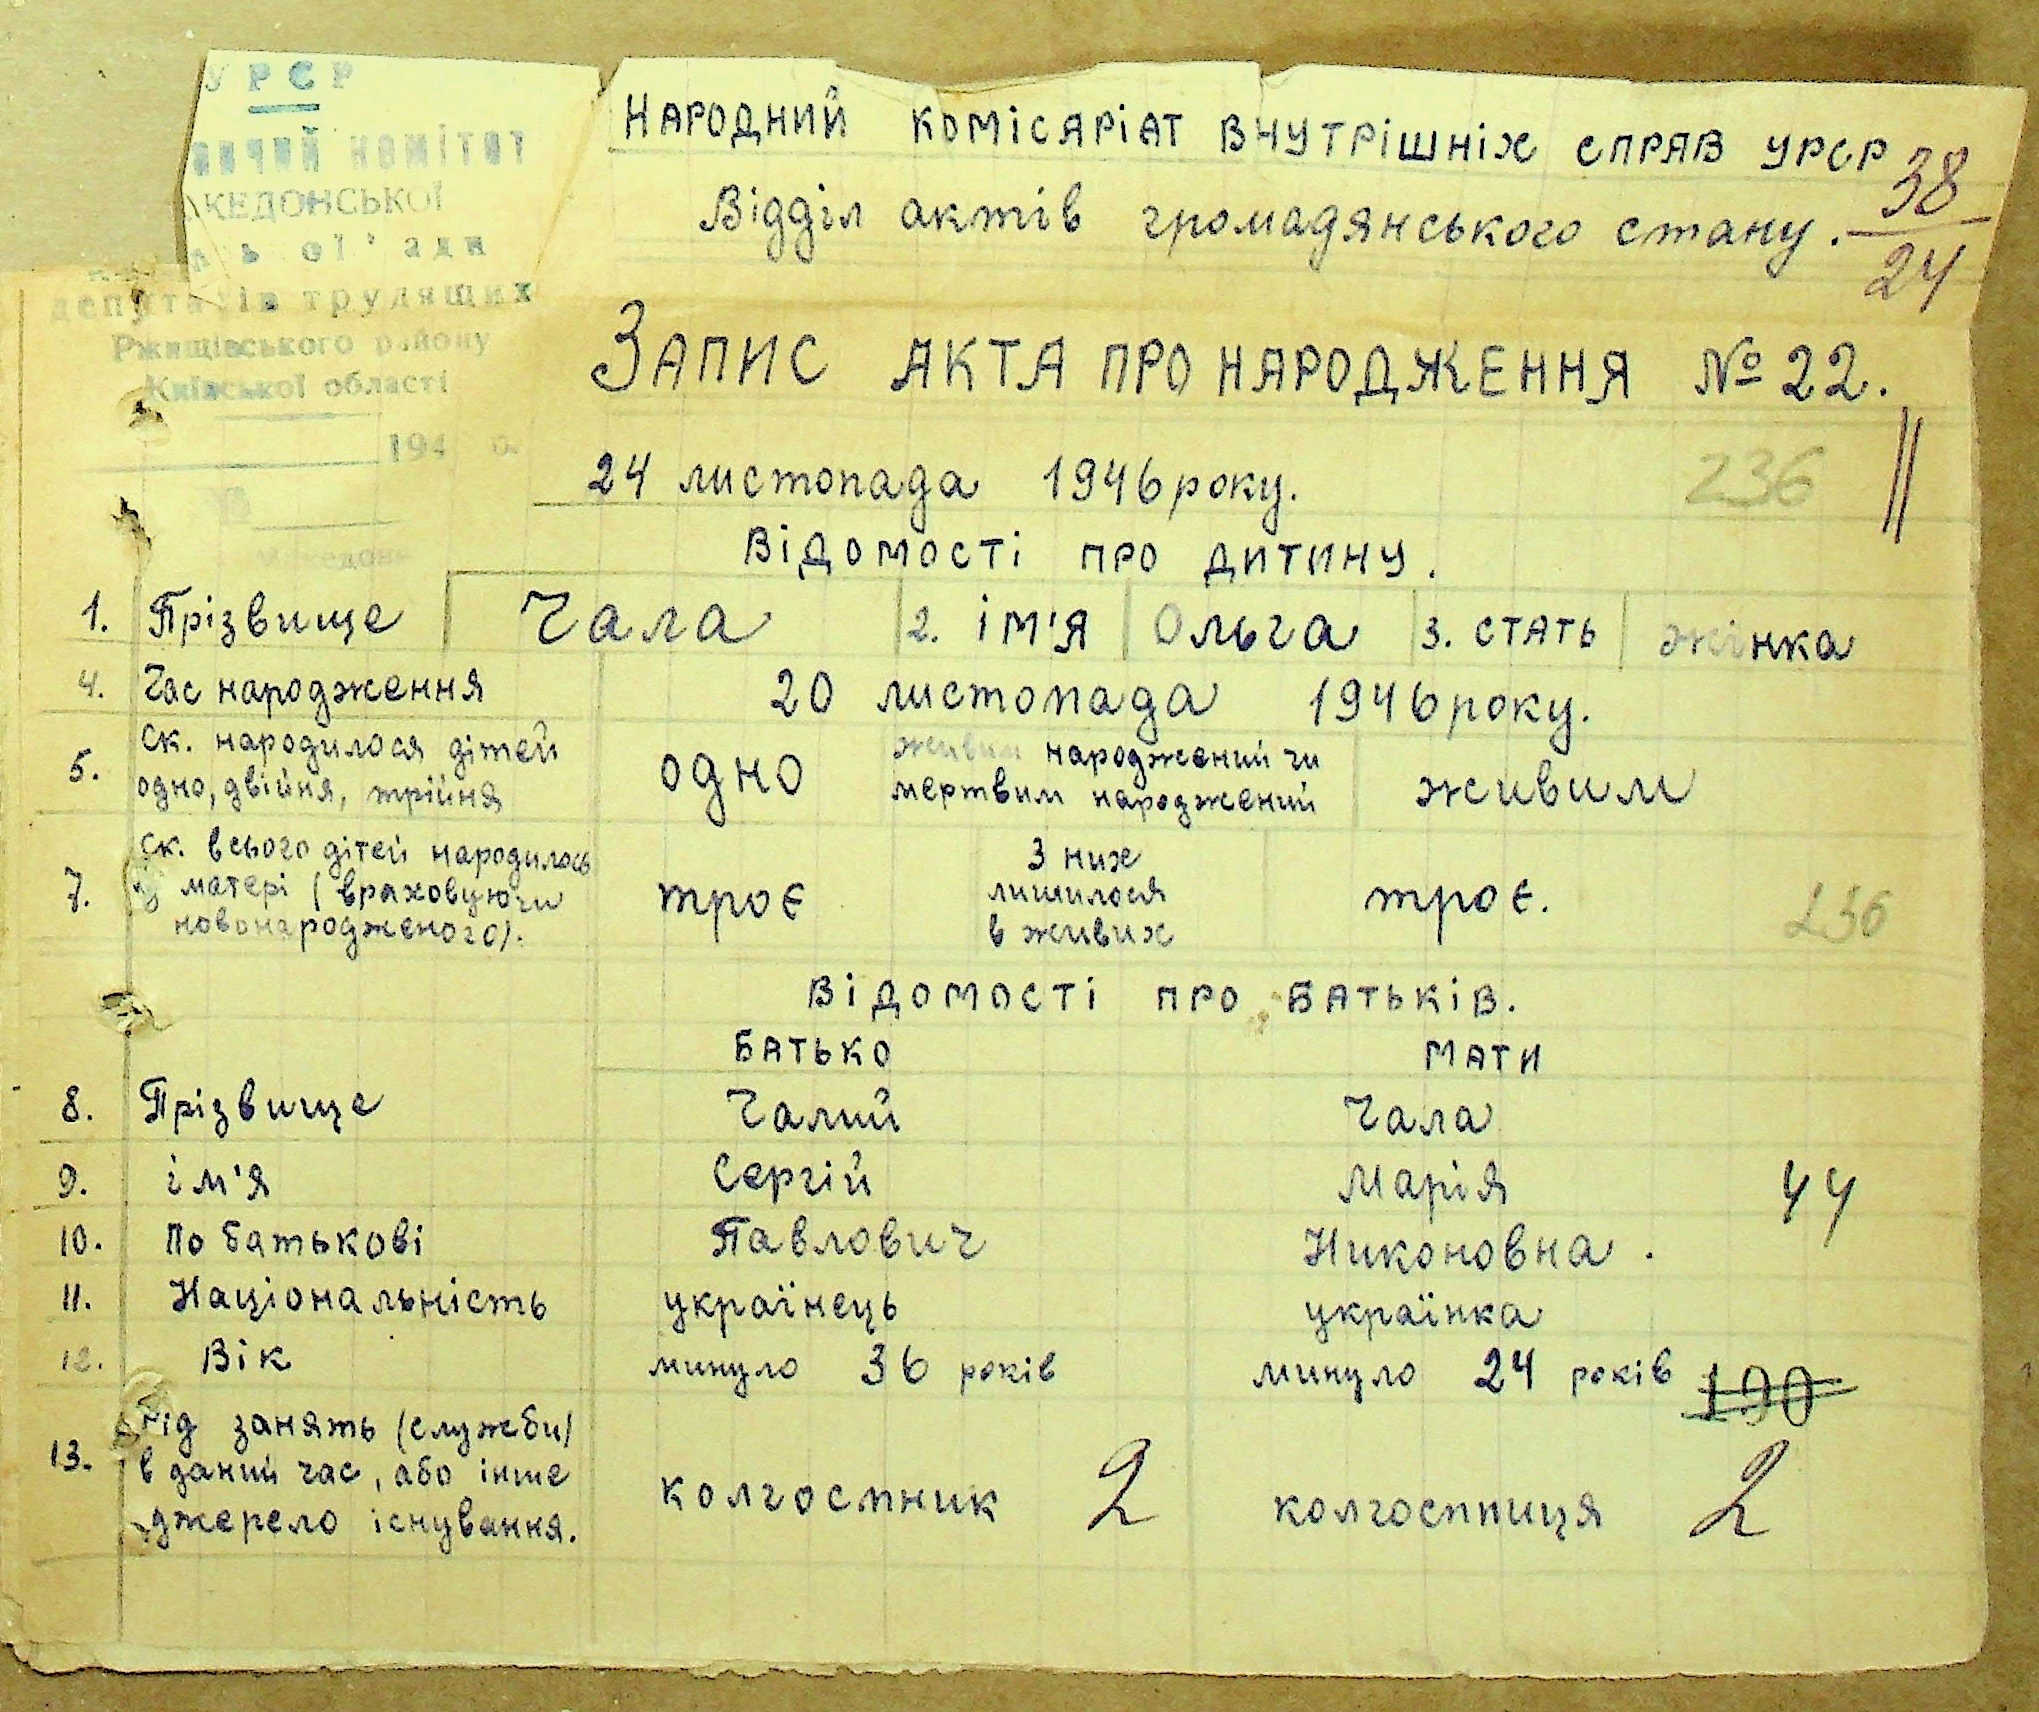 УРСР
КЕДОНСЬКОЇ
депутатів трудящих
Ржищівського району
Київської області
194 р.
НАРОДНИЙ КОМІСАРІАТ ВНУТРІШНІХ СПРАВ УРСР
38
24
Відділ актів громадянського стану.
ЗАПИС АКТА ПРО НАРОДЖЕННЯ № 22.
24 листопада 1946 року.
236
ВІДОМОСТІ ПРО ДИТИНУ.
1. Прізвище Чала 2. ІМ'Я Ольга 3. СТАТЬ жінка
4. Час народження 20 листопада 1946 року.
5. Ск. народилося дітей одно, двійня, трійня одно живим народжений чи мертвим народжений живим
7. Ск. всього дітей народилось у матері (враховуючи новонародженого). троє З них лишилося в живих троє.
236
ВІДОМОСТІ ПРО БАТЬКІВ.
БАТЬКО МАТИ
8. Прізвище Чалий Чала
9. ім'я Сергій Марія 44
10. по батькові Павлович Никоновна.
11. Національність українець українка
12. Вік минуло 36 років минуло 24 років 190
13. Рід занять (служби) в даний час, або інше джерело існування. колгоспник 2 колгоспниця 2